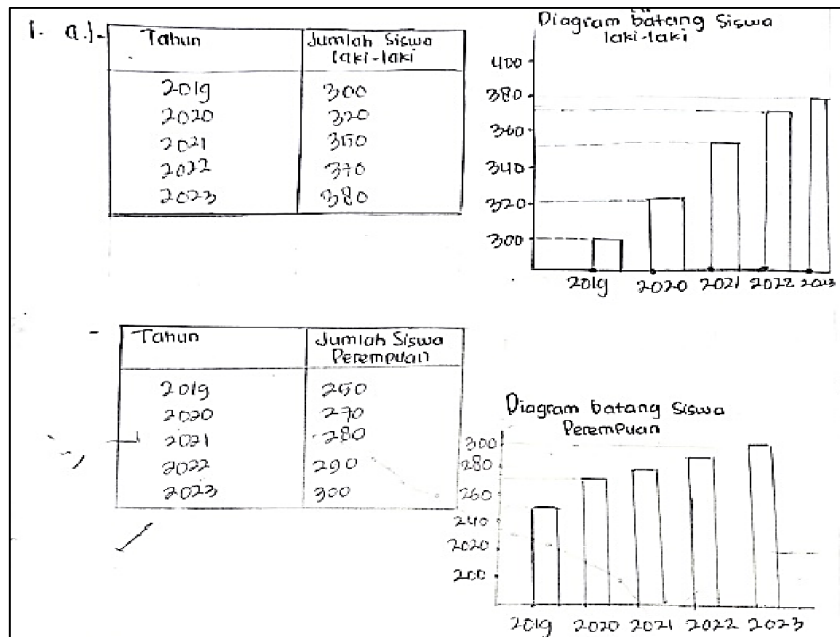 1. a.).
Tahun Jumlah Siswa laki-laki
2019 300
2020 320
2021 350
2022 370
2023 380
Diagram batang Siswa
laki-laki
400
380
360
340
320
300
2019 2020 2021 2022 2023
- Tahun Jumlah Siswa Perempuan
2019 250
2020 270
2021 280
2022 290
2023 300
Diagram batang Siswa
Perempuan
300
280
260
240
2020
200
2019 2020 2021 2022 2023